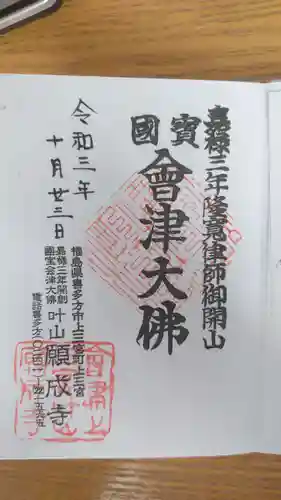 嘉祿三年隆寛律師御開山
國寳
會津大佛
令和三年
十月廿三日
福島県喜多方市上三宮町上三宮
嘉祿三年開創
國宝会津大佛
叶山 願成寺